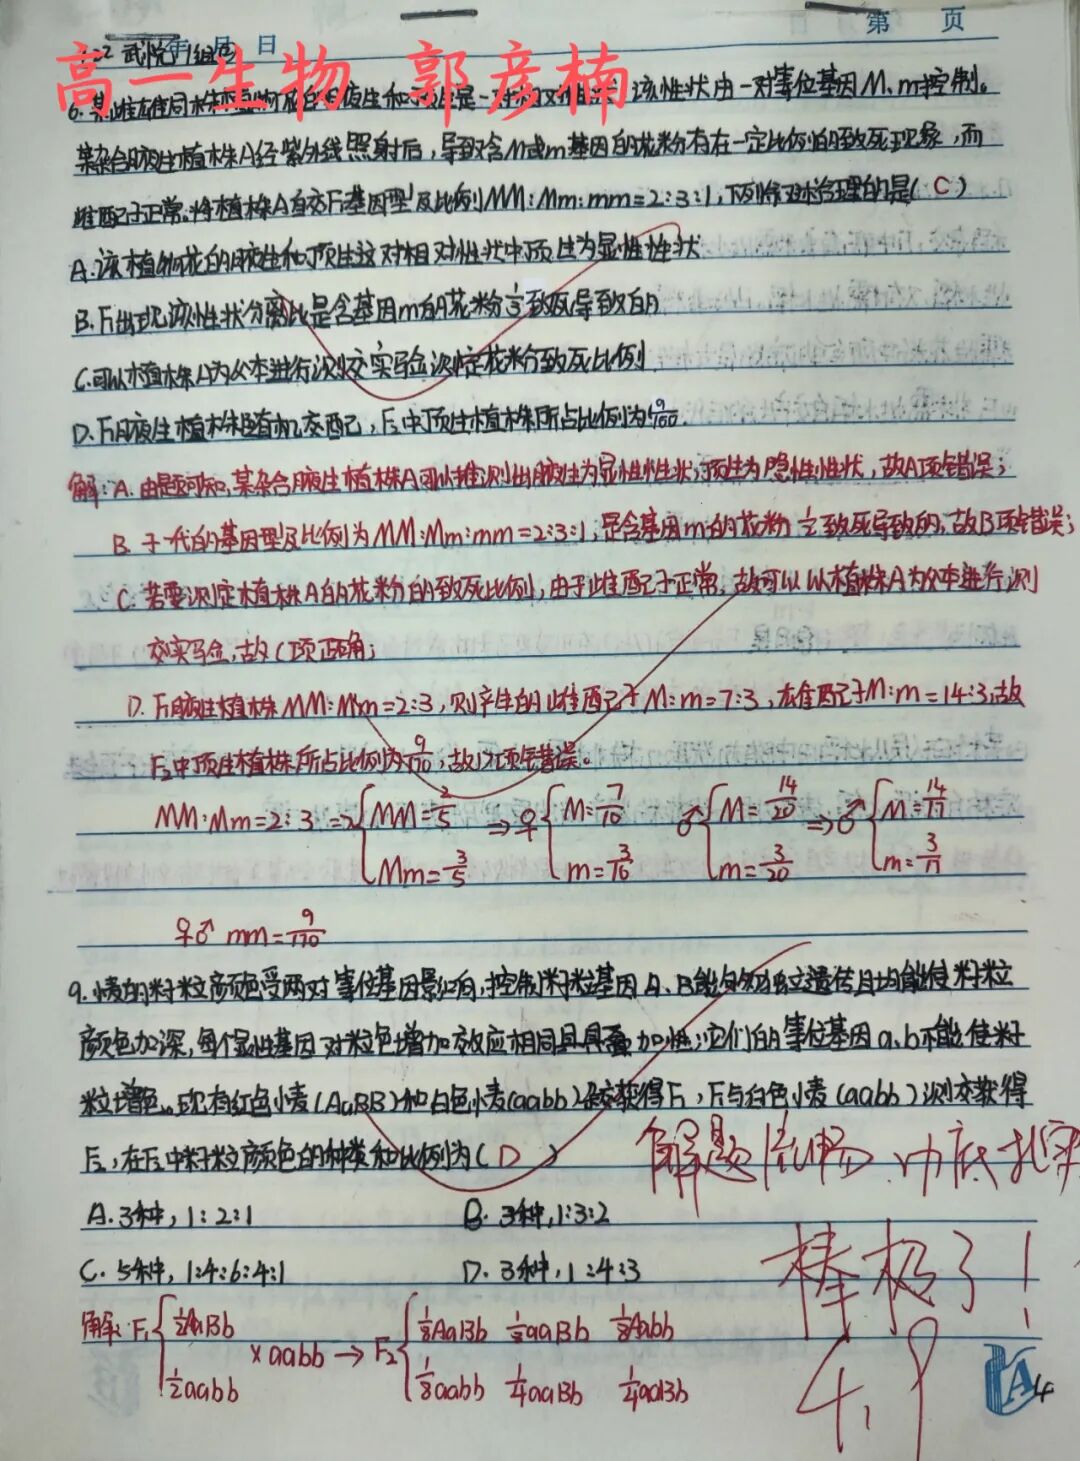 第 页
年 月 日
武悦 1组
高一生物 郭彦楠
6. 某雌雄同株植物花的腋生和顶生是一对相对性状,该性状由一对等位基因M、m控制。
某杂合腋生植株A经紫外线照射后,导致含M或m基因的花粉有在一定比例的致死现象,而
雌配子正常。将植株A自交F₁基因型及比例MM:Mm:mm=2:3:1,下列叙述合理的是( C )
A.该植物花的腋生和顶生这对相对性状中顶生为显性性状
B. F₁出现该性状分离比是含基因m的花粉½致死导致的
C.可以植株A为父本进行测交实验测定花粉致死比例
D. F₁腋生植株随机交配,F₂中顶生植株所占比例为9/100.
解:A. 由题可知,某杂合腋生植株A可以推测出腋生为显性性状,顶生为隐性性状,故A项错误;
B. 子一代的基因型及比例为MM:Mm:mm=2:3:1,是含基因m的花粉½致死导致的,故B项错误;
C. 若要测定植株A的花粉的致死比例,由于雌配子正常,故可以以植株A为父本进行测
交实验,故C项正确;
D. F₁腋生植株MM:Mm=2:3,则产生的雌雄配子M:m=7:3,雄配子M:m=14:3,故
F₂中顶生植株所占比例为9/170,故D项错误。
MM:Mm=2:3 ⇒{MM=2/5 ⇒♀{M=7/10 ♂{M=14/20 ⇒♂{M=14/17
Mm=3/5 m=3/10 m=3/20 m=3/17
♀♂ mm=9/170
9. 小麦的籽粒颜色受两对等位基因影响,控制籽粒基因A、B能独立遗传且均能使籽粒
颜色加深,每个显性基因对粒色增加效应相同且具叠加性;它们的等位基因a、b不能使籽
粒增色。现有红色小麦(AaBB)和白色小麦(aabb)杂交获得F₁,F₁与白色小麦(aabb)测交获得
F₂,在F₂中籽粒颜色的种类和比例为( D )
解题流畅、功底扎实
A. 3种,1:2:1 B. 3种,1:3:2
C. 5种,1:4:6:4:1 D. 3种,1:4:3
棒极了!
解:F₁{½AaBb ×aabb → F₂{⅛AaBb ⅛aaBb ⅛Aabb
½aabb ⅛aabb ¼aaBb ¼aaBb
4.9
A4